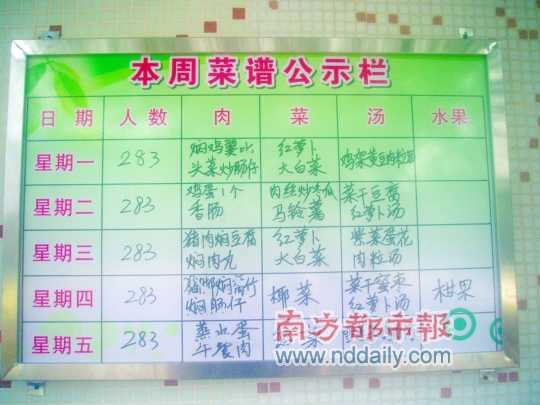 本周菜谱公示栏
日期 人数 肉 菜 汤 水果
星期一 283 焖鸡翼 红萝卜
头菜炒肠仔 大白菜
星期二 283 鸡蛋1个 肉丝炒冬瓜 菜干豆腐
香肠 马铃薯 红萝卜汤
星期三 283 猪肉焖豆腐 红萝卜 紫菜蛋花
焖肉丸 大白菜 肉粒汤
星期四 283 椰菜 菜干蜜枣 柑果
焖肠仔 红萝卜汤
星期五 283 蒸水蛋
午餐肉
南方都市報
www.nddaily.com